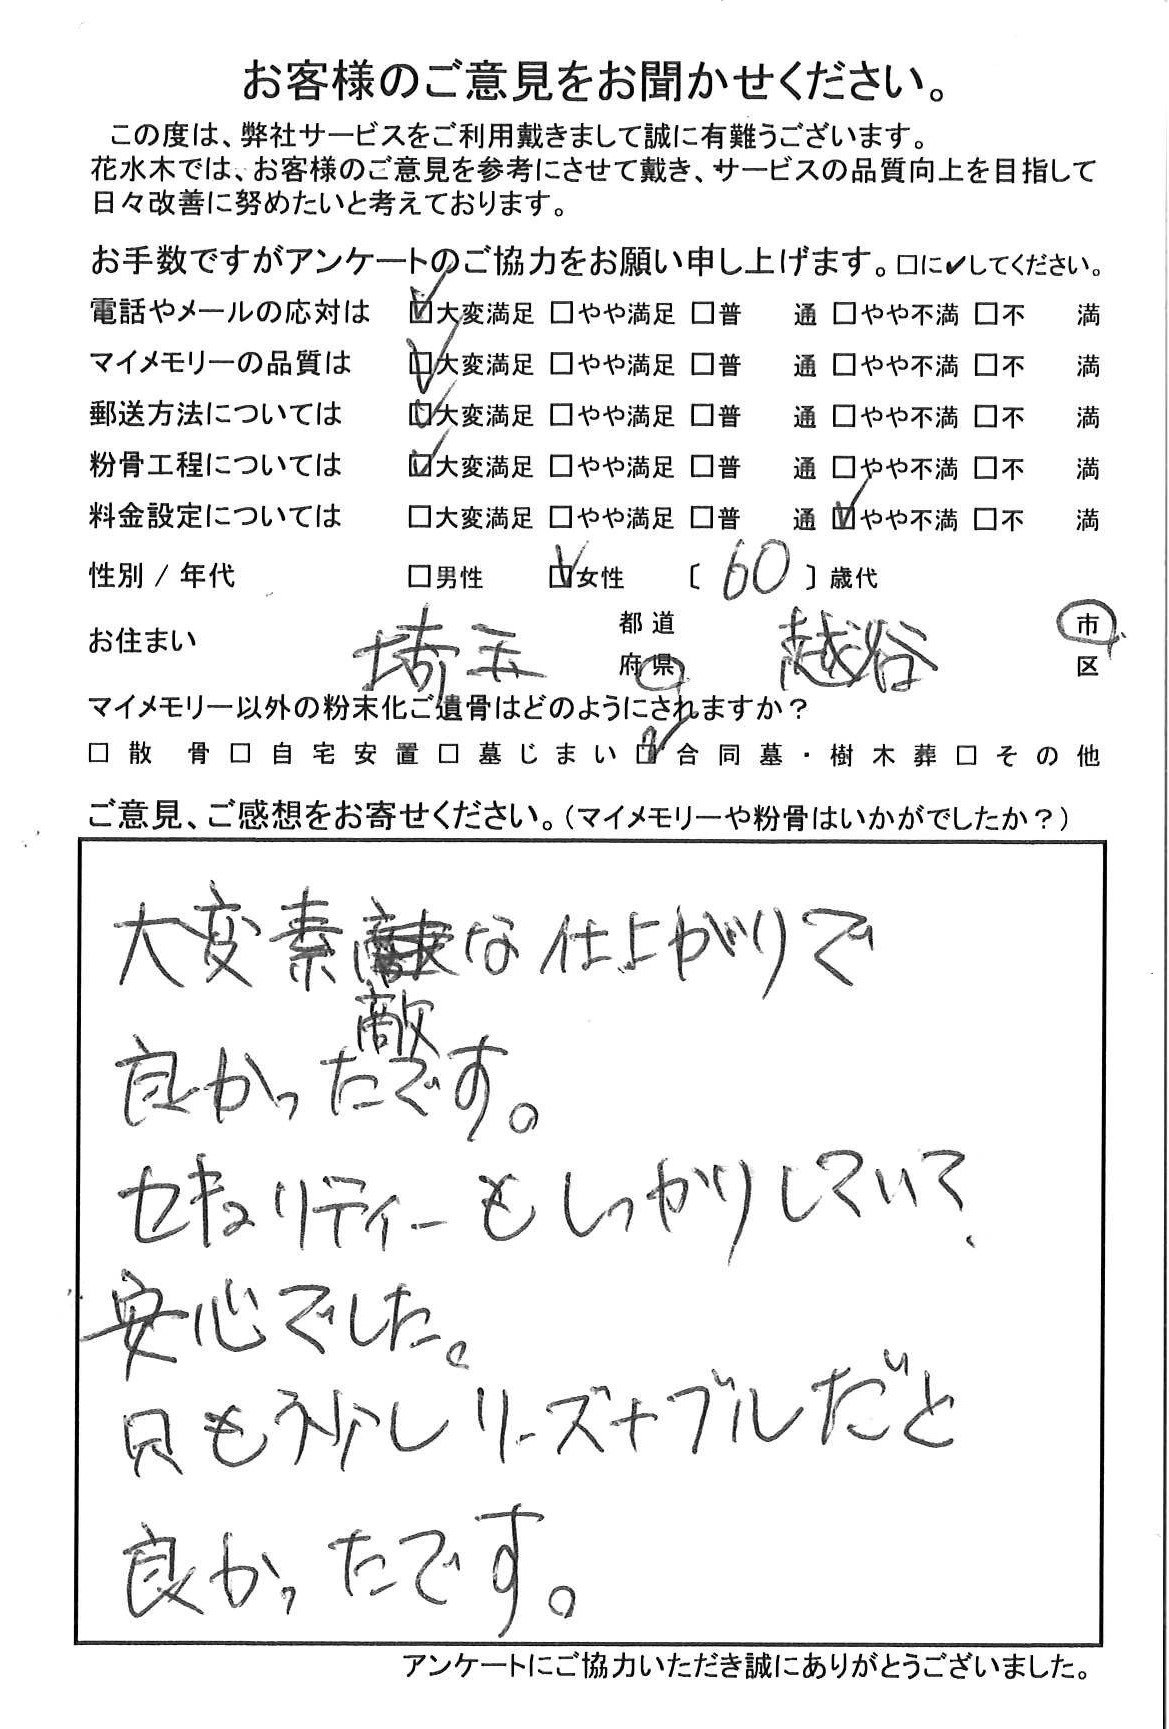 お客様のご意見をお聞かせください。
この度は、弊社サービスをご利用戴きまして誠に有難うございます。
花水木では、お客様のご意見を参考にさせて戴き、サービスの品質向上を目指して
日々改善に努めたいと考えております。
お手数ですがアンケートのご協力をお願い申し上げます。□に✔してください。
電話やメールの応対は ☑大変満足 □やや満足 □普 通 □やや不満 □不 満
マイメモリーの品質は ☑大変満足 □やや満足 □普 通 □やや不満 □不 満
郵送方法については ☑大変満足 □やや満足 □普 通 □やや不満 □不 満
粉骨工程については ☑大変満足 □やや満足 □普 通 □やや不満 □不 満
料金設定については □大変満足 □やや満足 □普 通 ☑やや不満 □不 満
性別 / 年代 □男性 ☑女性 〔 60 〕歳代
お住まい 埼玉 都道府県 越谷 市区
マイメモリー以外の粉末化ご遺骨はどのようにされますか？
□散 骨 □自宅安置 □墓じまい ☑合同墓・樹木葬 □その他
ご意見、ご感想をお寄せください。（マイメモリーや粉骨はいかがでしたか？）
大変素敵な仕上がりで
良かったです。
セキュリティーもしっかりしていて、
安心でした。
只もう少しリーズナブルだと
良かったです。
アンケートにご協力いただき誠にありがとうございました。